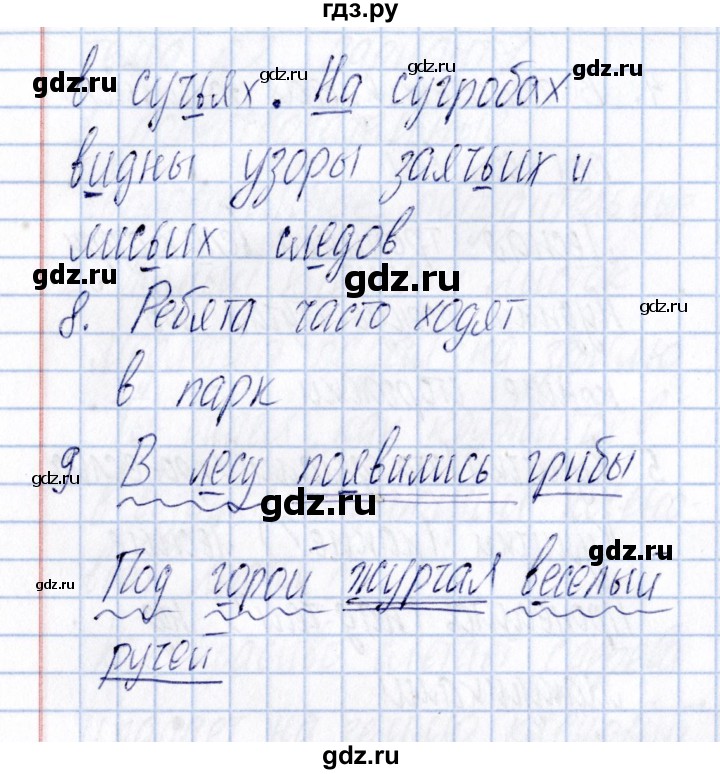 гдз.ру
gdz.ru gdz.ru gdz.ru
в сучьях. На сугробах
видны узоры заячьих и
лисьих следов
gdz.ru gdz.ru gdz.ru
8. Ребята часто ходят
в парк
9 В лесу появились грибы
gdz.ru gdz.ru
gdz.ru
Под горой журчал веселый
gdz.ru
ручей
gdz.ru